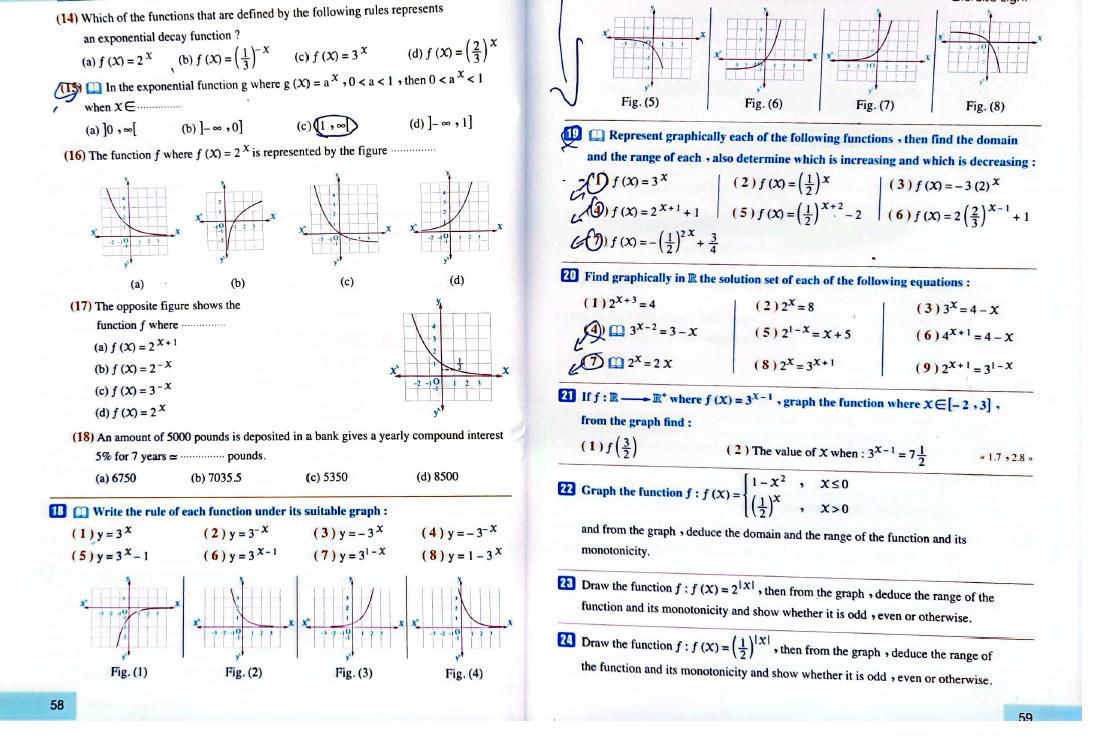 (14) Which of the functions that are defined by the following rules represents
an exponential decay function ?
(a) f (X) = 2^X (b) f (X) = (1/3)^-X (c) f (X) = 3^X (d) f (X) = (2/3)^X
(15) In the exponential function g where g (X) = a^X , 0 < a < 1 , then 0 < a^X < 1
when X ∈ ..............
(a) ]0 , ∞[ (b) ]- ∞ , 0] (c) ]1 , ∞[ (d) ]- ∞ , 1]
(16) The function f where f (X) = 2^X is represented by the figure ..............
(a) (b) (c) (d)
(17) The opposite figure shows the
function f where ..............
(a) f (X) = 2^X+1
(b) f (X) = 2^-X
(c) f (X) = 3^-X
(d) f (X) = 2^X
(18) An amount of 5000 pounds is deposited in a bank gives a yearly compound interest
5% for 7 years ≃ .............. pounds.
(a) 6750 (b) 7035.5 (c) 5350 (d) 8500
18 Write the rule of each function under its suitable graph :
(1) y = 3^X (2) y = 3^-X (3) y = - 3^X (4) y = - 3^-X
(5) y = 3^X - 1 (6) y = 3^X-1 (7) y = 3^1-X (8) y = 1 - 3^X
Fig. (1) Fig. (2) Fig. (3) Fig. (4)
58
Fig. (5) Fig. (6) Fig. (7) Fig. (8)
19 Represent graphically each of the following functions , then find the domain
and the range of each , also determine which is increasing and which is decreasing :
(1) f (X) = 3^X (2) f (X) = (1/2)^X (3) f (X) = - 3 (2)^X
(4) f (X) = 2^X+1 + 1 (5) f (X) = (1/2)^X+2 - 2 (6) f (X) = 2 (2/3)^X-1 + 1
(7) f (X) = - (1/2)^2X + 3/4
20 Find graphically in ℝ the solution set of each of the following equations :
(1) 2^X+3 = 4 (2) 2^X = 8 (3) 3^X = 4 - X
(4) 3^X-2 = 3 - X (5) 2^1-X = X + 5 (6) 4^X+1 = 4 - X
(7) 2^X = 2 X (8) 2^X = 3^X+1 (9) 2^X+1 = 3^1-X
21 If f : ℝ → ℝ+ where f (X) = 3^X-1 , graph the function where X ∈ [- 2 , 3] ,
from the graph find :
(1) f (3/2) (2) The value of X when : 3^X-1 = 7 1/2 « 1.7 , 2.8 »
22 Graph the function f : f (X) = { 1 - X^2 , X ≤ 0
(1/2)^X , X > 0
and from the graph , deduce the domain and the range of the function and its
monotonicity.
23 Draw the function f : f (X) = 2^|X| , then from the graph , deduce the range of the
function and its monotonicity and show whether it is odd , even or otherwise.
24 Draw the function f : f (X) = (1/2)^|X| , then from the graph , deduce the range of
the function and its monotonicity and show whether it is odd , even or otherwise.
59